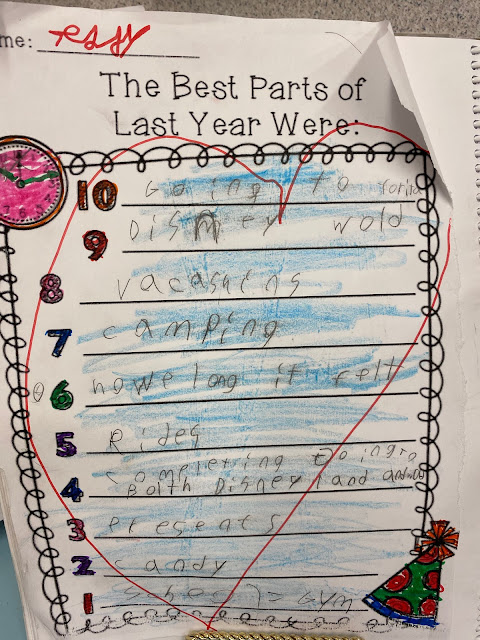 me:
The Best Parts of
Last Year Were:
10 Going to
9 Disney wold
8 vacashins
7 camping
6 howe long it felt
5 Rides
4 completing
Boith Disney land and
3 presents
2 candy
1 gym